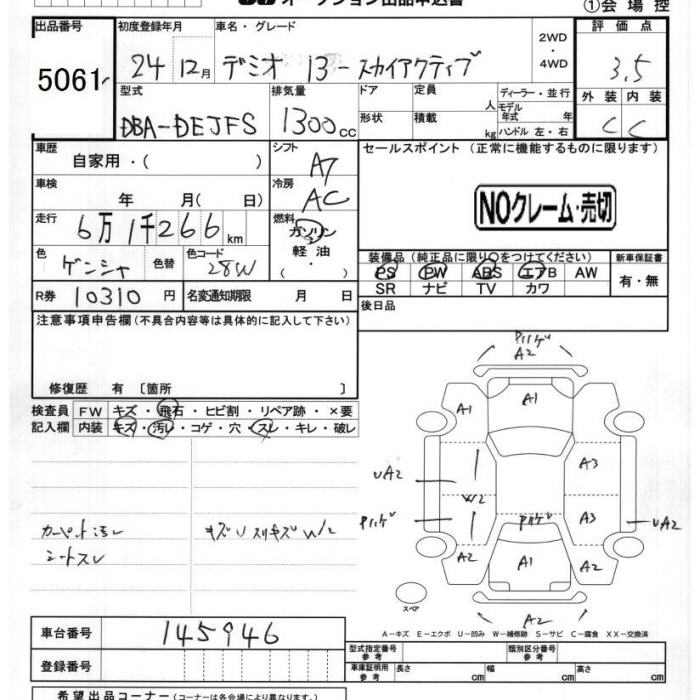 オークション出品申込書
①会場控
出品番号
5061
初度登録年月
24 12月
車名・グレード
デミオ 13-スカイアクティブ
2WD
・
4WD
評価点
3.5
型式
DBA-DEJFS
排気量
1300cc
ドア
定員
人
形状
積載
kg
ディーラー・並行
モデル年式 年
ハンドル 左・右
外装 内装
C C
車歴
自家用・( )
シフト
AT
セールスポイント (正常に機能するものに限ります)
車検
年 月( 日)
冷房
AC
NOクレーム・売切
走行
6万1千266km
燃料
ガソリン
軽油
・( )
色
ゲンシャ
色替
色コード
28W
装備品(純正品に限り○をつけてください)
PS PW ABS エアB AW
SR ナビ TV カワ
新車保証書
有・無
R券 10310 円
名変通知期限 月 日
後日品
注意事項申告欄(不具合内容等は具体的に記入して下さい)
修復歴 有 〔箇所 〕
検査員
記入欄
FW キズ・飛石・ヒビ割・リペア跡・×要
内装 キズ・汚レ・コゲ・穴・スレ・キレ・破レ
カーペット汚レ
シートスレ
キズU スリキズ W2
A2
A1
A1
A3
UA2
W2
A3
UA2
A2
A1
A2
A2
スペア
A-キズ E-エクボ U-凹み W-補修跡 S-サビ C-腐食 XX-交換済
車台番号
145946
登録番号
型式指定番号
参考
類別区分番号
参考
車庫証明用
参考
長さ cm
幅 cm
高さ cm
希望出品コーナー(コーナーは各会場により異なります。)